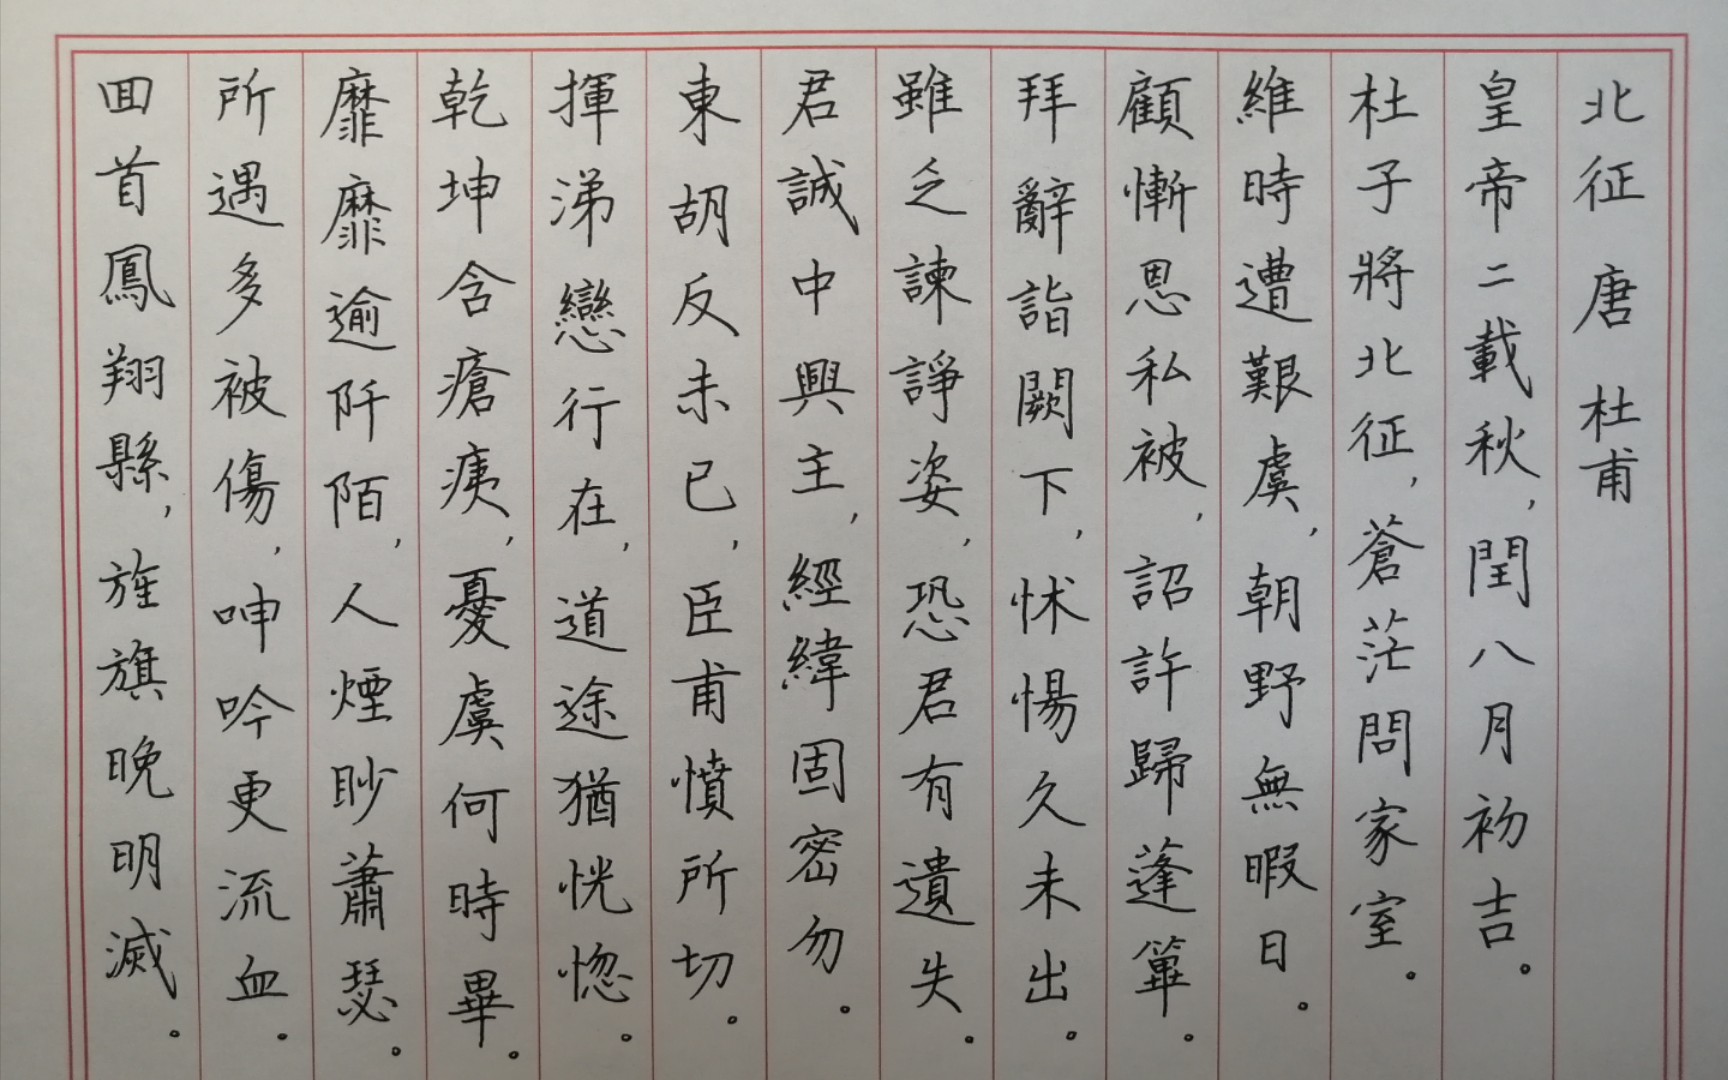 北征 唐 杜甫
皇帝二載秋，閏八月初吉。
杜子將北征，蒼茫問家室。
維時遭艱虞，朝野無暇日。
顧慚恩私被，詔許歸蓬篳。
拜辭詣闕下，怵惕久未出。
雖乏諫諍姿，恐君有遺失。
君誠中興主，經緯固密勿。
東胡反未已，臣甫憤所切。
揮涕戀行在，道途猶恍惚。
乾坤含瘡痍，憂虞何時畢。
靡靡逾阡陌，人煙眇蕭瑟。
所遇多被傷，呻吟更流血。
回首鳳翔縣，旌旗晚明滅。